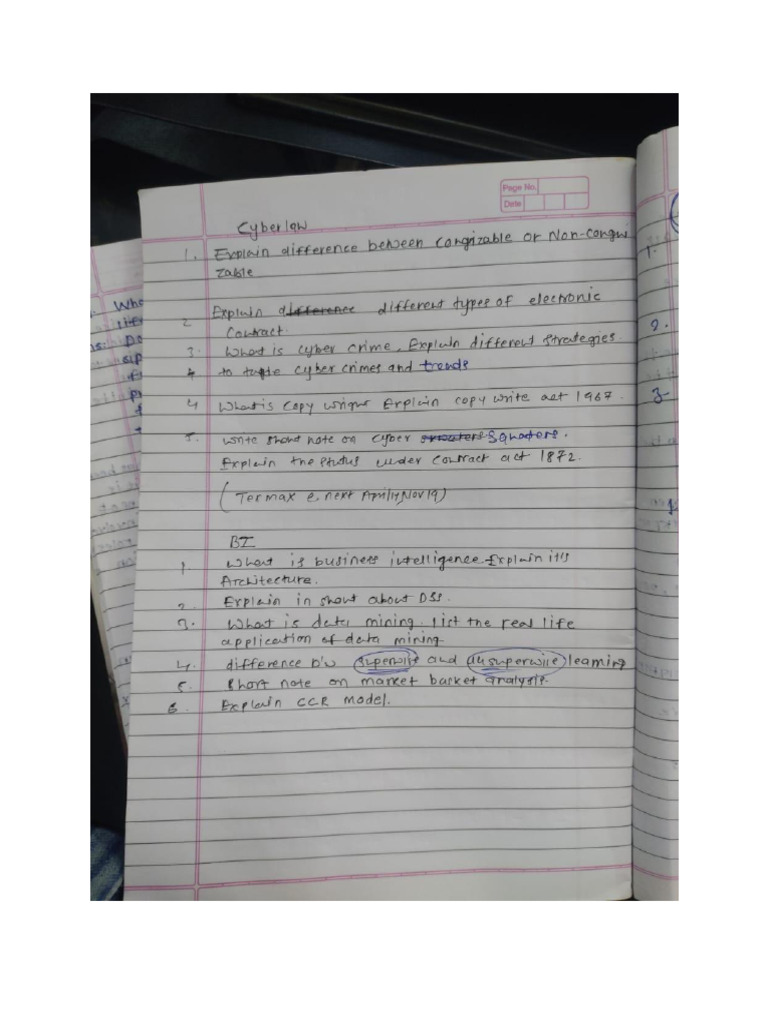 Page No.
Date
Cyberlaw
1. Explain difference between Congnizable or Non-Congni
zable
2 Explain different types of electronic
Contract.
3. What is cyber crime. Explain different strategies.
4 to takle cyber crimes and trends
4 What is Copy wright Explain copy write act 1967.
5. write short note on cyber Squaters.
Explain the status under contract act 1872.
BI
1 What is business intelligence. Explain it's
Architecture.
2. Explain in short about DSS.
3. What is data mining. list the real life
application of data mining
4. difference b/w superwise and unsuperwise learning
5. Short note on market basket analysis.
6. Explain CCR model.